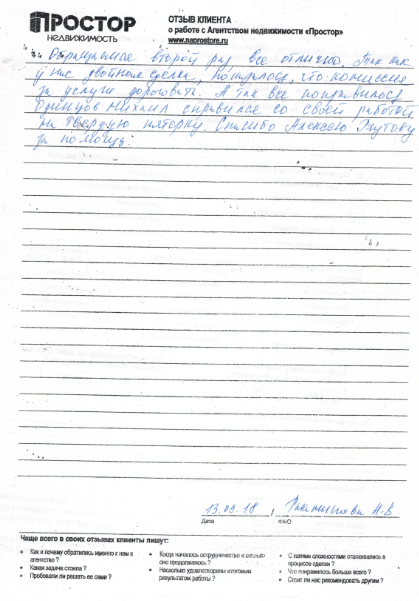 ПРОСТОР
НЕДВИЖИМОСТЬ
ОТЗЫВ КЛИЕНТА
о работе с Агентством недвижимости «Простор»
www.naprostore.ru
Обращаемся второй раз, все отлично. Так как
у нас двойная сделка, показалось, что комиссия
за услуги дороговата. А так все понравилось,
Михаил справился со своей работой
на твердую пятерку. Спасибо Алексею
за помощь.
13.09.18
Дата
ФИО
Чаще всего в своих отзывах клиенты пишут:
• Как и почему обратились именно к нам в
агентство ?
• Какая задача стояла ?
• Пробовали ли решать ее сами ?
• Когда началось сотрудничество и сколько
оно продолжалось ?
• Насколько удовлетворены итоговым
результатом работы ?
• С какими сложностями сталкивались в
процессе сделки ?
• Что понравилось больше всего ?
• Стоит ли нас рекомендовать другим ?